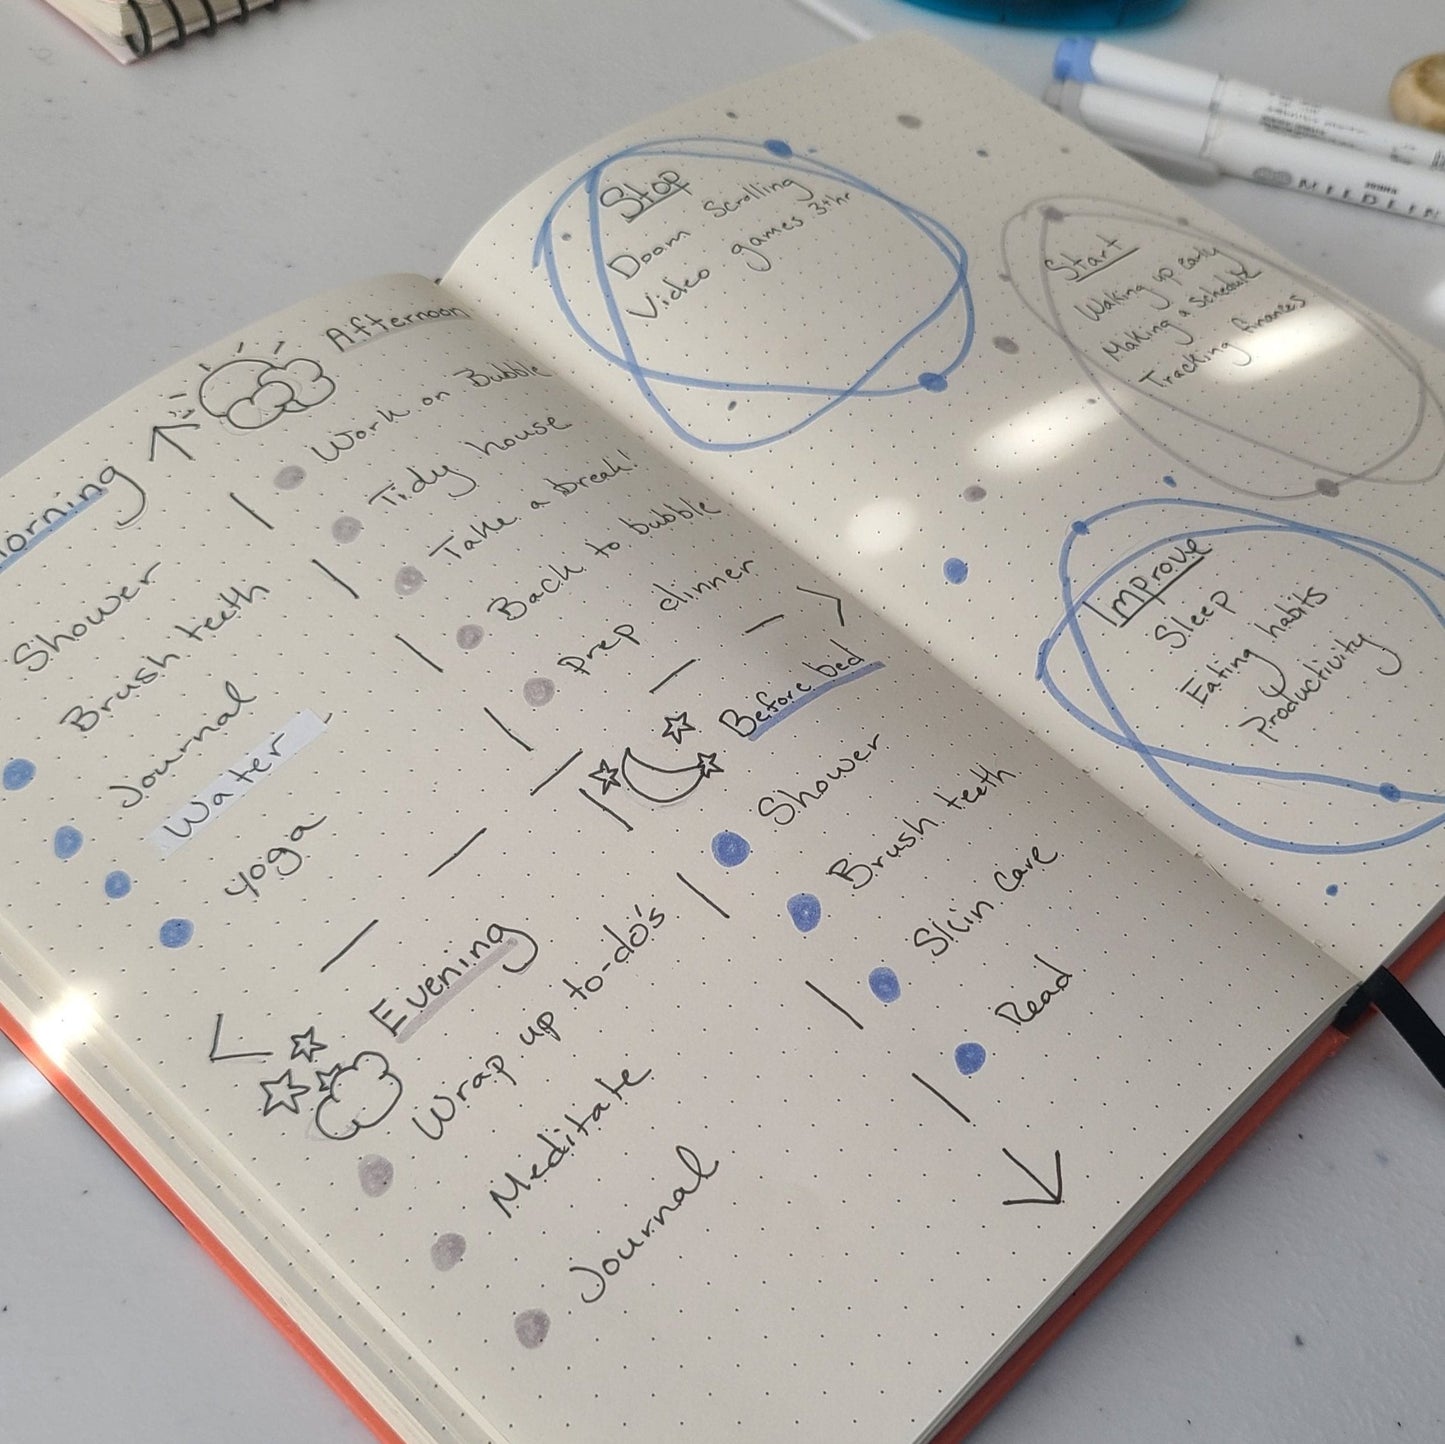 Morning
Shower
Brush teeth
Journal
Water
yoga
Afternoon
Work on Bubble
Tidy house
Take a break!
Back to bubble
Prep dinner
Evening
Wrap up to-do's
Meditate
Journal
Before bed
Shower
Brush teeth
Skin Care
Read
Stop
Doom Scrolling
Video games 3+hr
Start
Waking up early
Making a schedule
Tracking finances
Improve
Sleep
Eating habits
Productivity